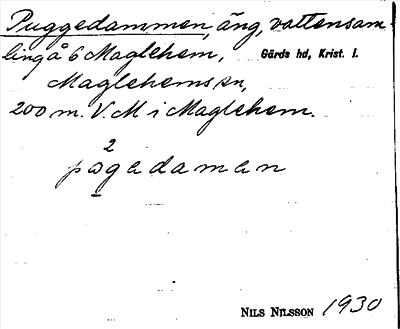 Puggedammen, äng, vattensam
ling å 6 Maglehem, Gärds hd, Krist. l.
Maglehems sn,
200 m. V. M i Maglehem.
2
pɷgadaman
NILS NILSSON 1930